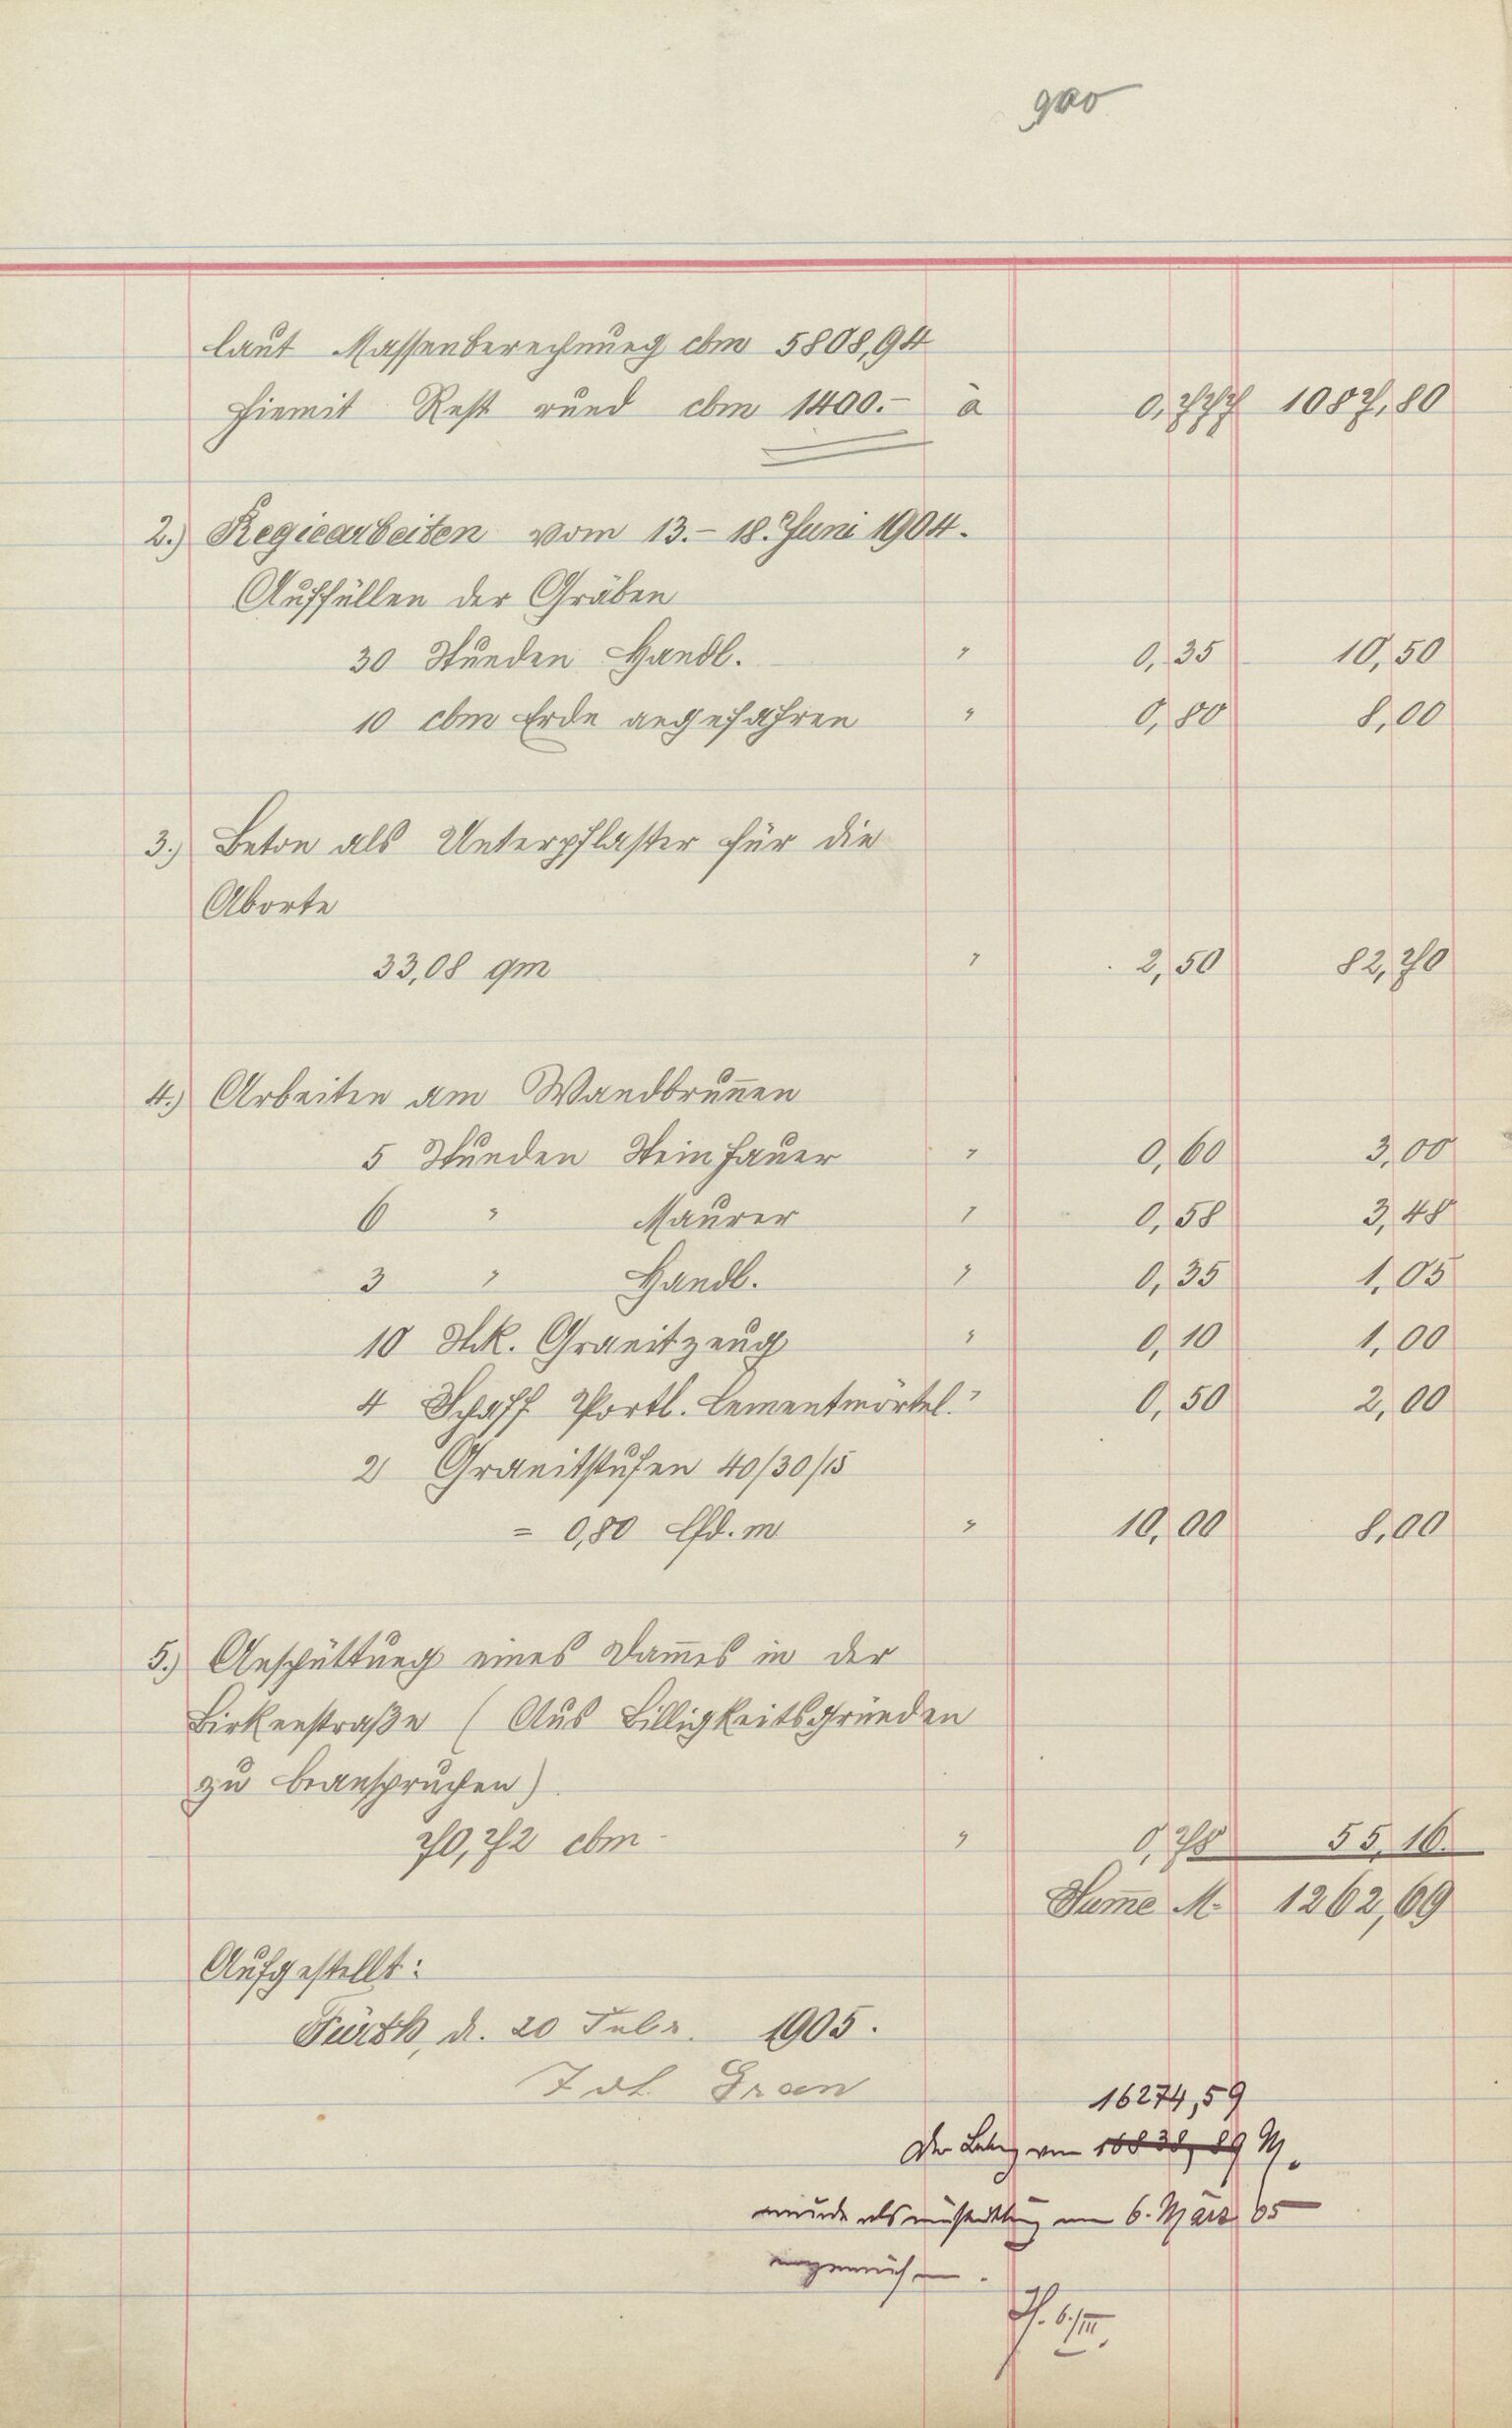 laut Massenberechnung cbm 5808,94
hiemit Rest rund cbm 1400.- à 0,777 1087,80
2.) Regiearbeiten vom 13.- 18. Juni 1904.
Auffüllen der Gräben
30 Stunden Handl. " 0,35 10,50
10 cbm Erde angefahren " 0,80 8,00
3.) Beton als Unterpflaster für die
Aborte
33,08 qm " 2,50 82,70
4.) Arbeiten am Wandbrunnen
5 Stunden Steinhauer " 0,60 3,00
6 " Maurer " 0,58 3,48
3 " Handl. " 0,35 1,05
10 Stk. Granitzeug " 0,10 1,00
4 Schaff Portl. Cementmörtel " 0,50 2,00
2 Granitstufen 40/30/15
= 0,80 lfd. m " 10,00 8,00
5.) Anschüttung eines Dammes in der
Birkenstraße (Aus Billigkeitsgründen
zu beanspruchen)
70,72 cbm " 0,78 55,16.
Summe M. 1262,69
Aufgestellt:
Fürth, d. 20 Febr. 1905.
Gran
16274,59
Der von M.
wurde als am 6. März 05